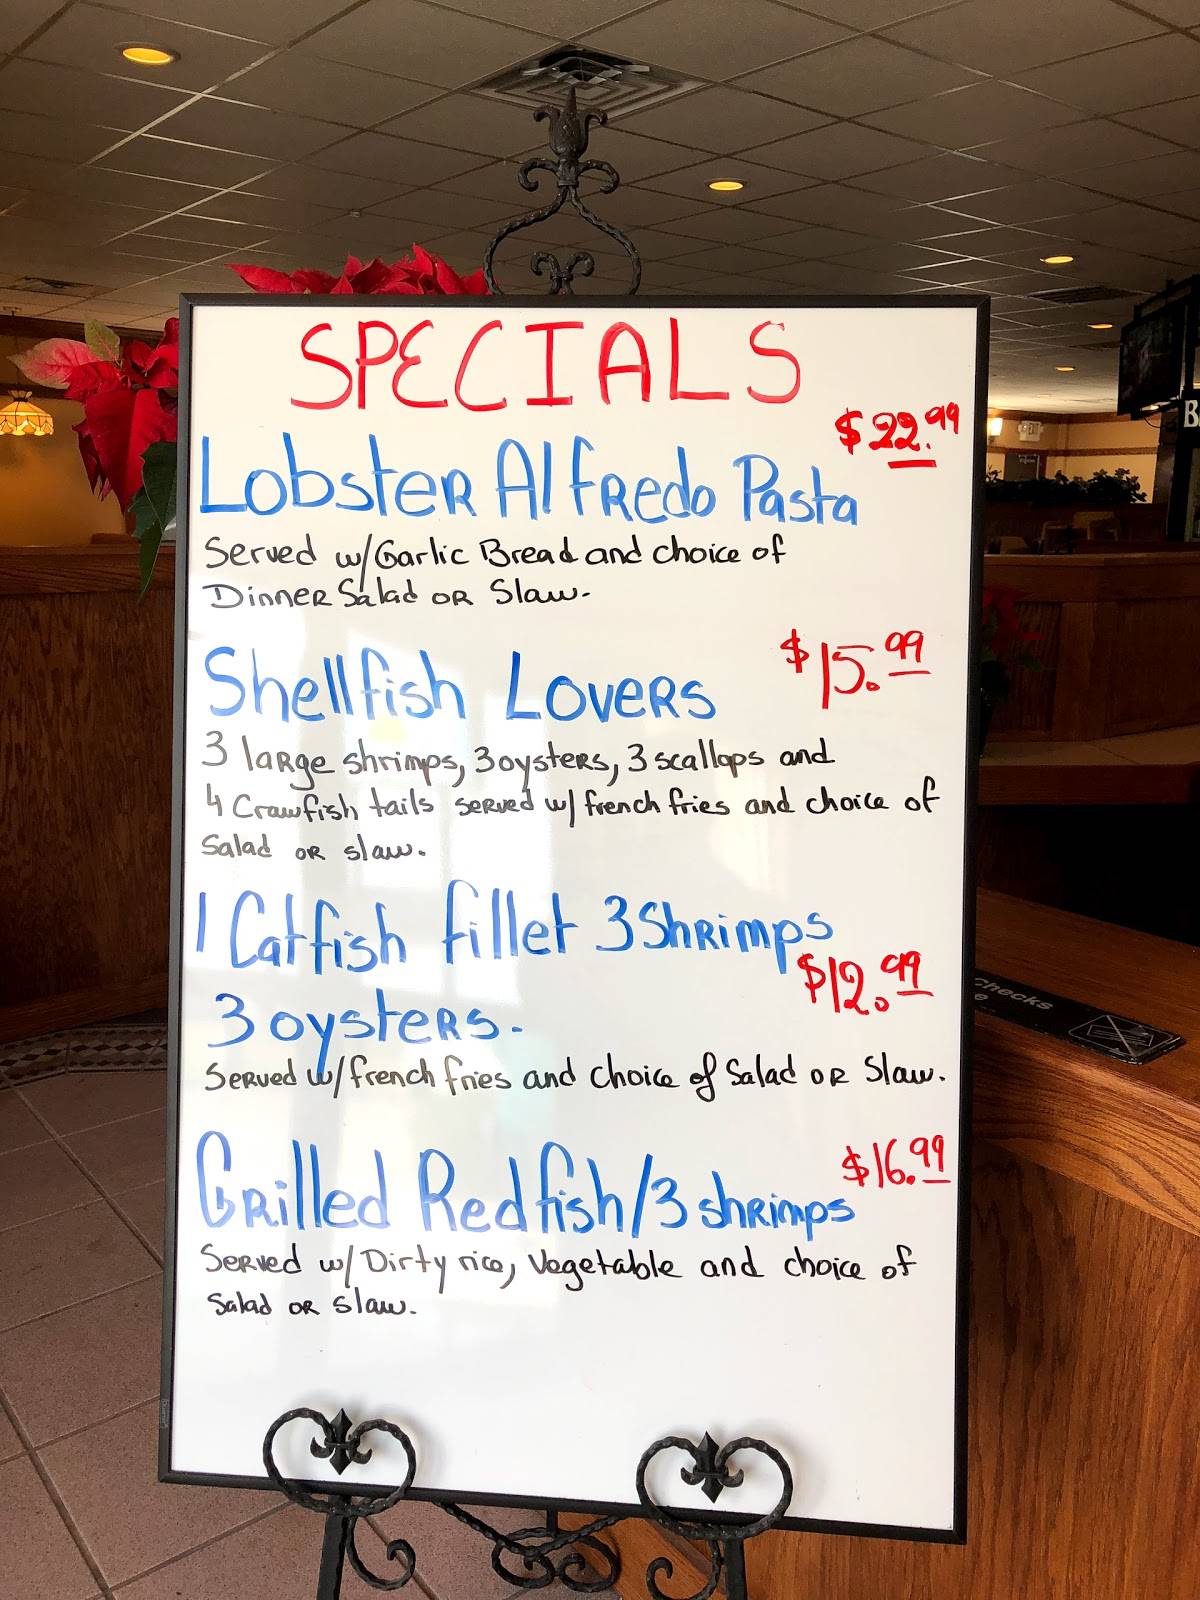 SPECIALS
$22.99
Lobster Alfredo Pasta
Served w/Garlic Bread and choice of
Dinner Salad or Slaw.
Shellfish Lovers
$15.99
3 large shrimps, 3 oysters, 3 scallops and
4 Crawfish tails served w/ french fries and choice of
Salad or slaw.
1 Catfish fillet 3 Shrimps
$12.99
3 oysters.
Served w/ french fries and choice of Salad or Slaw.
$16.99
Grilled Redfish/3 shrimps
Served w/ Dirty rice, Vegetable and choice of
Salad or slaw.
checks